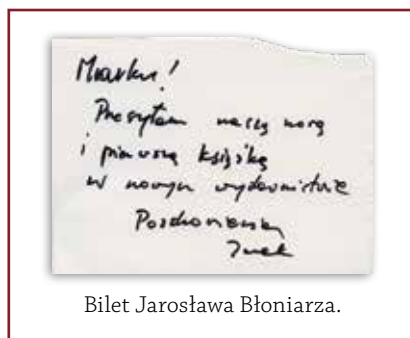 Marku!
Przesyłam naszą nową
i pierwszą książkę
w nowym wydawnictwie
Jurek
Bilet Jarosława Błoniarza.